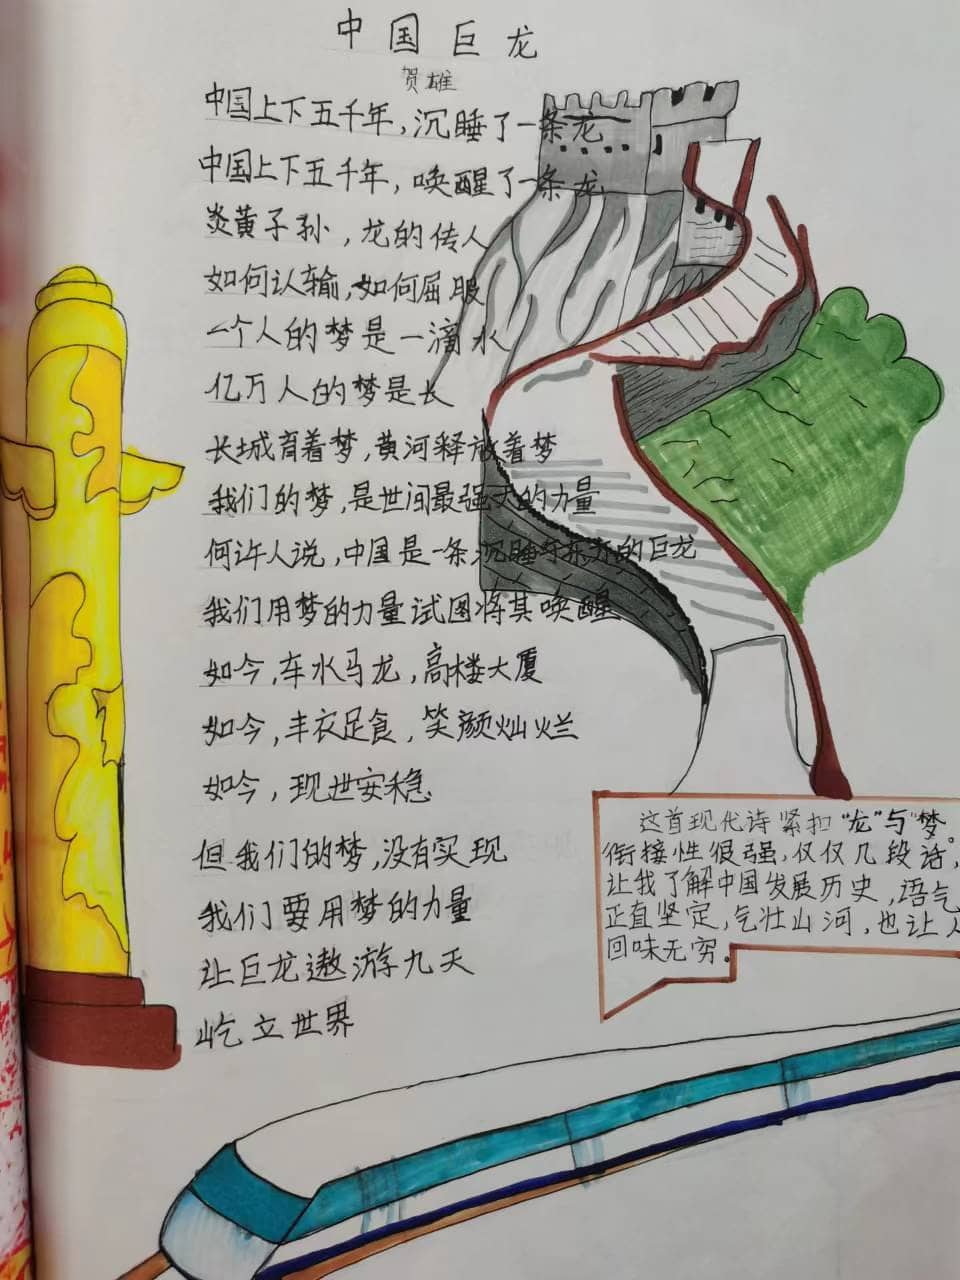 中国巨龙
贺雄
中国上下五千年,沉睡了一条龙
中国上下五千年,唤醒了一条龙
炎黄子孙,龙的传人
如何认输,如何屈服
一个人的梦是一滴水
亿万人的梦是长
长城育着梦,黄河释放着梦
我们的梦,是世间最强大的力量
何许人说,中国是一条沉睡在东方的巨龙
我们用梦的力量试图将其唤醒
如今,车水马龙,高楼大厦
如今,丰衣足食,笑颜灿烂
如今,现世安稳
但我们的梦,没有实现
我们要用梦的力量
让巨龙遨游九天
屹立世界
这首现代诗紧扣“龙”与“梦。
衔接性很强,仅仅几段诗,
让我了解中国发展历史,语气
正直坚定,气壮山河,也让人
回味无穷。